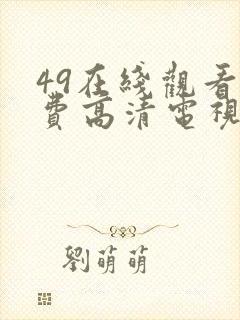 49在綫觀看
費高清電視
劉萌萌